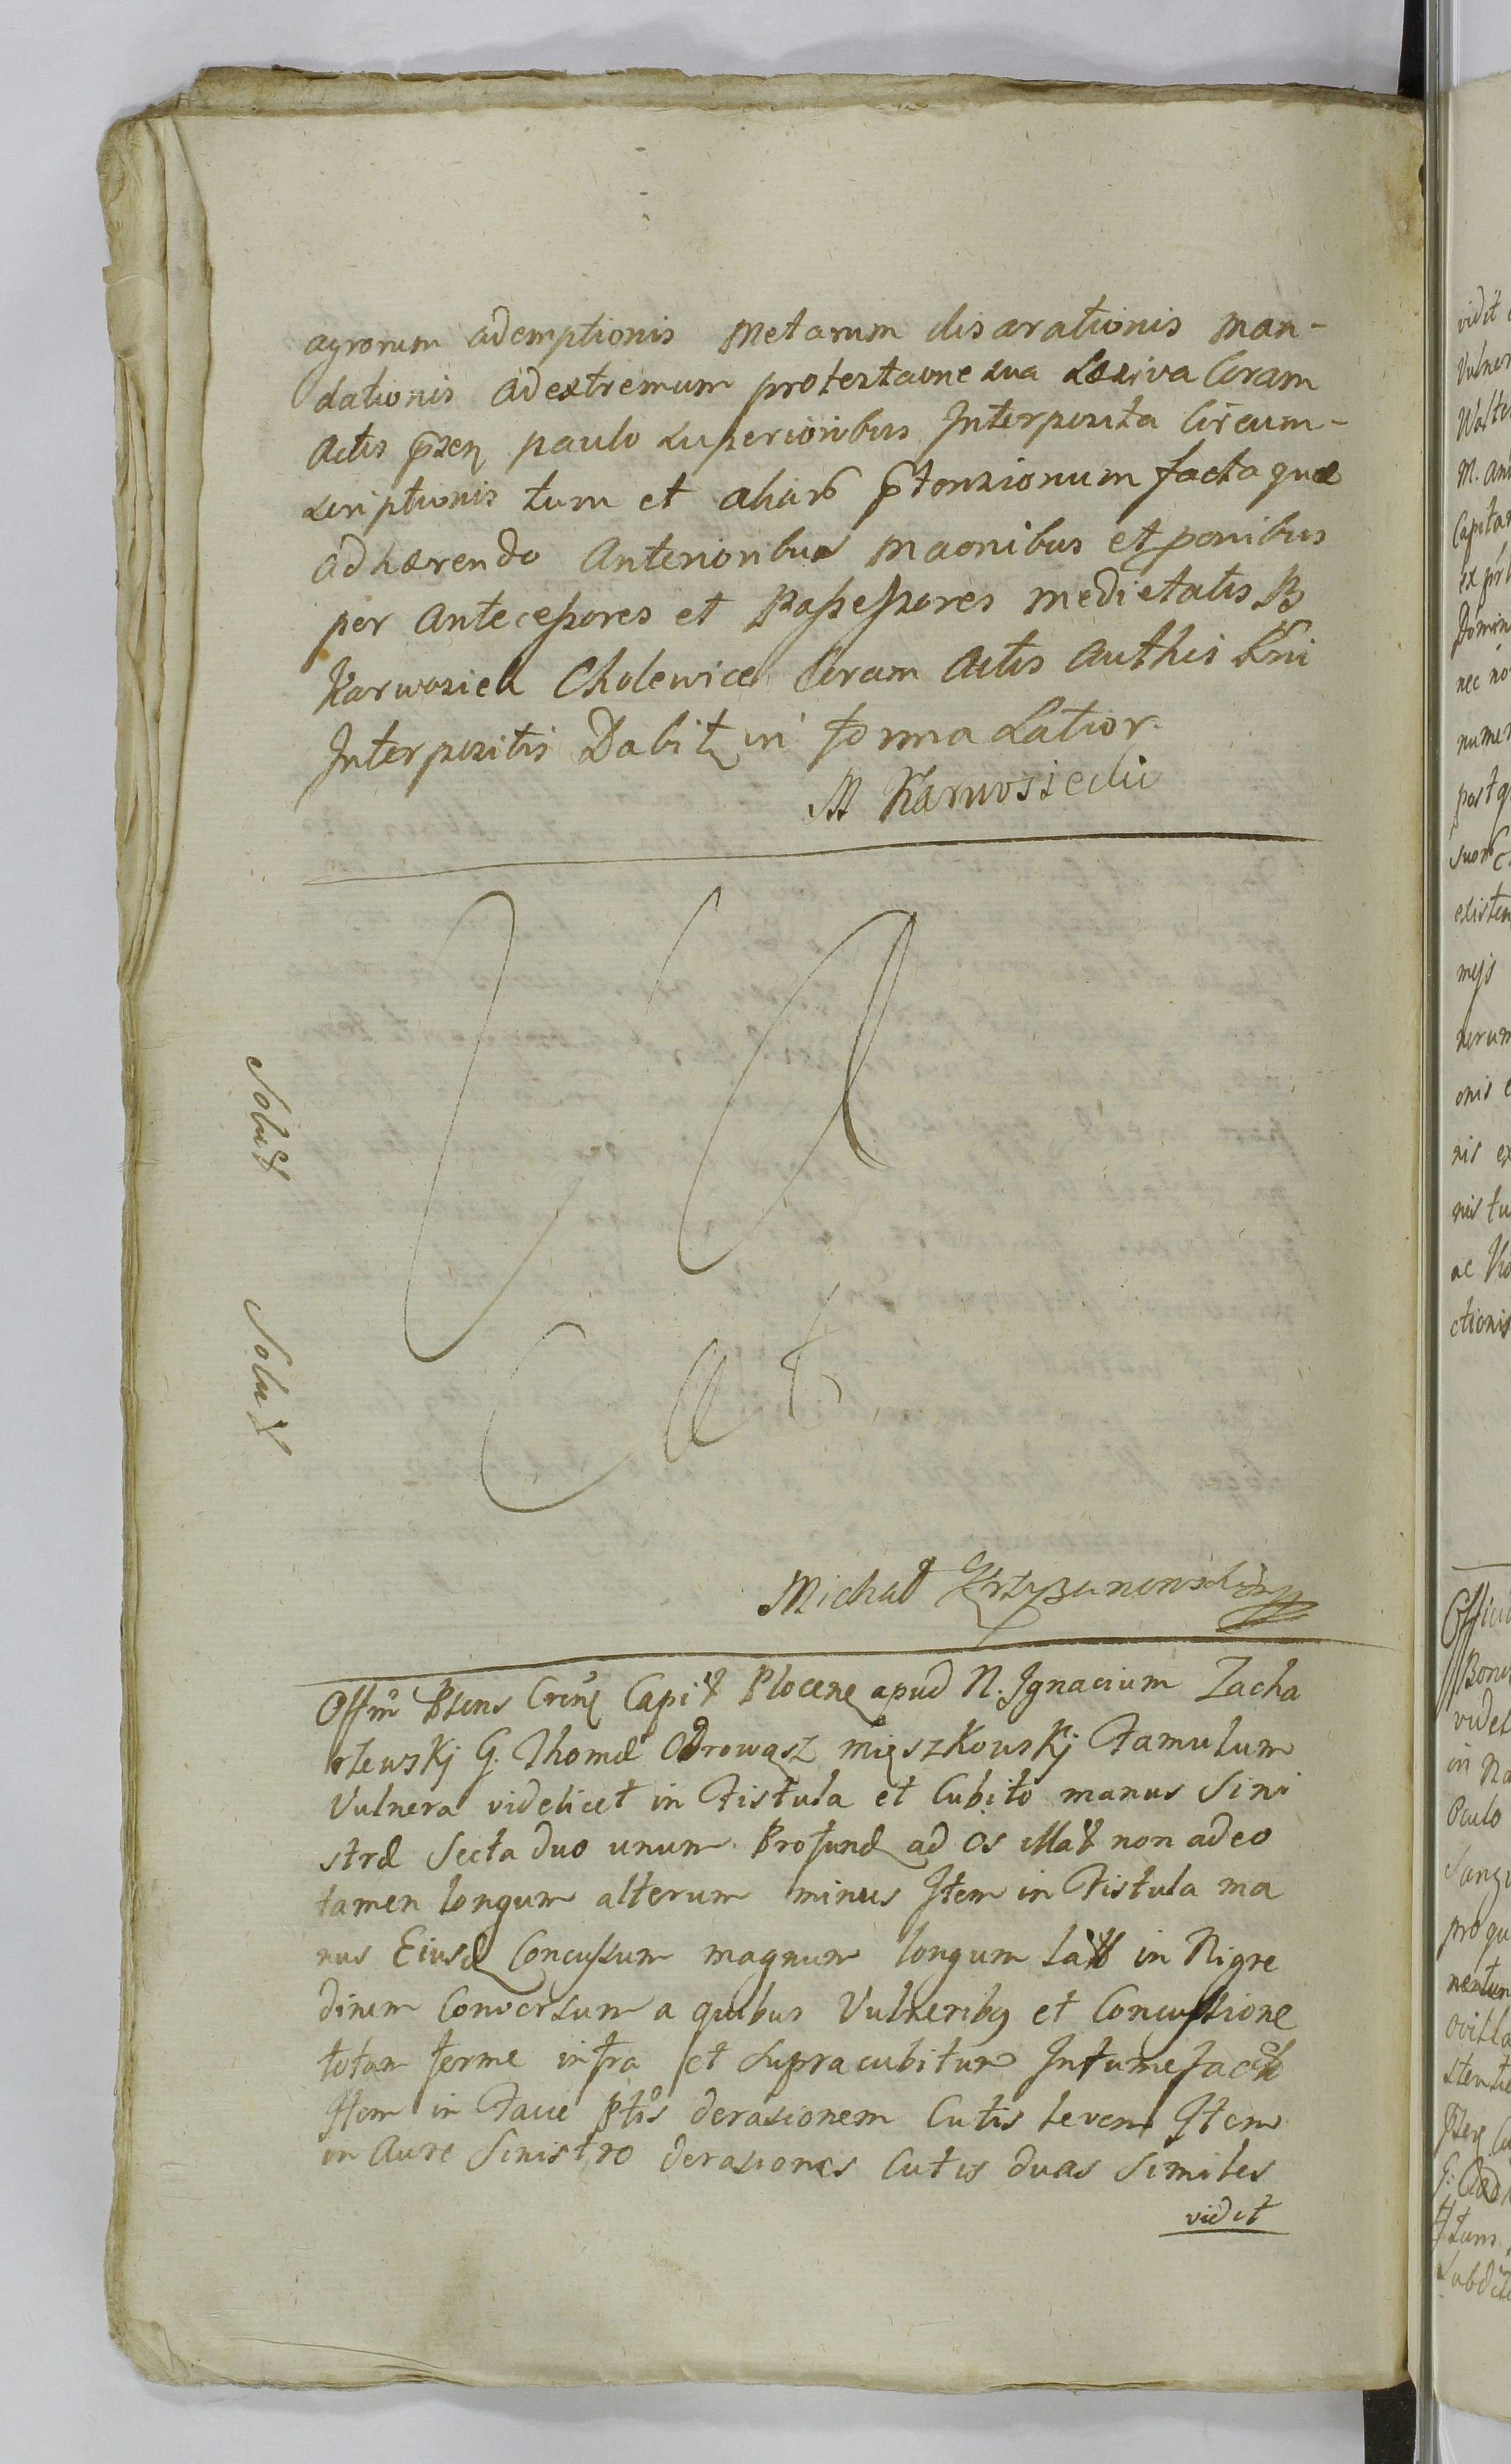 agrorum ademptionis Metarum disarationis man-
dationis ad extremum protestaone sua Læsiva Coram
Actis p̃sen paulo superioribus Interposita Circum-
scriptionis tum et aliar p̃tensionum facta quæ
adhærendo Anterioribus maonibus et ponibus
per Antecessores et Possessores medietatis B
Karwosiek Cholewice Coram Actis Authis
Interpositis Dabit in forma Latior.
M Karwosiecki
Solut
Solut
Cat
Michał
Offm Psens Crens Capit Plocens apud N. Ignacium Zacha
rzewskj G. Thomæ Odrowąsz Mięszkowskj Famulum
Vulnera videlicet in Fistula et Cubito manus Sini
stræ Secta duo unum Profund ad Os illat non adeo
tamen longum alterum minus Item in Fistula ma
nus Eiusd Concussum magnum longum lat in Nigre
dinem Conversum a quibus Vulneribs et Concussione
totam ferme infra et supra cubitum Intumefact
Item in Facie Ptis derasionem Cutis levem Item
in Aure Sinistro derasiones Cutis duas Similes
vidit
vidit
Vulner
M.
nec no
numer
post q
existen
mejs
rerum
onis
nis ex
nis tu
ctionis
videl
in Na
Oculo
Sang
pro qu